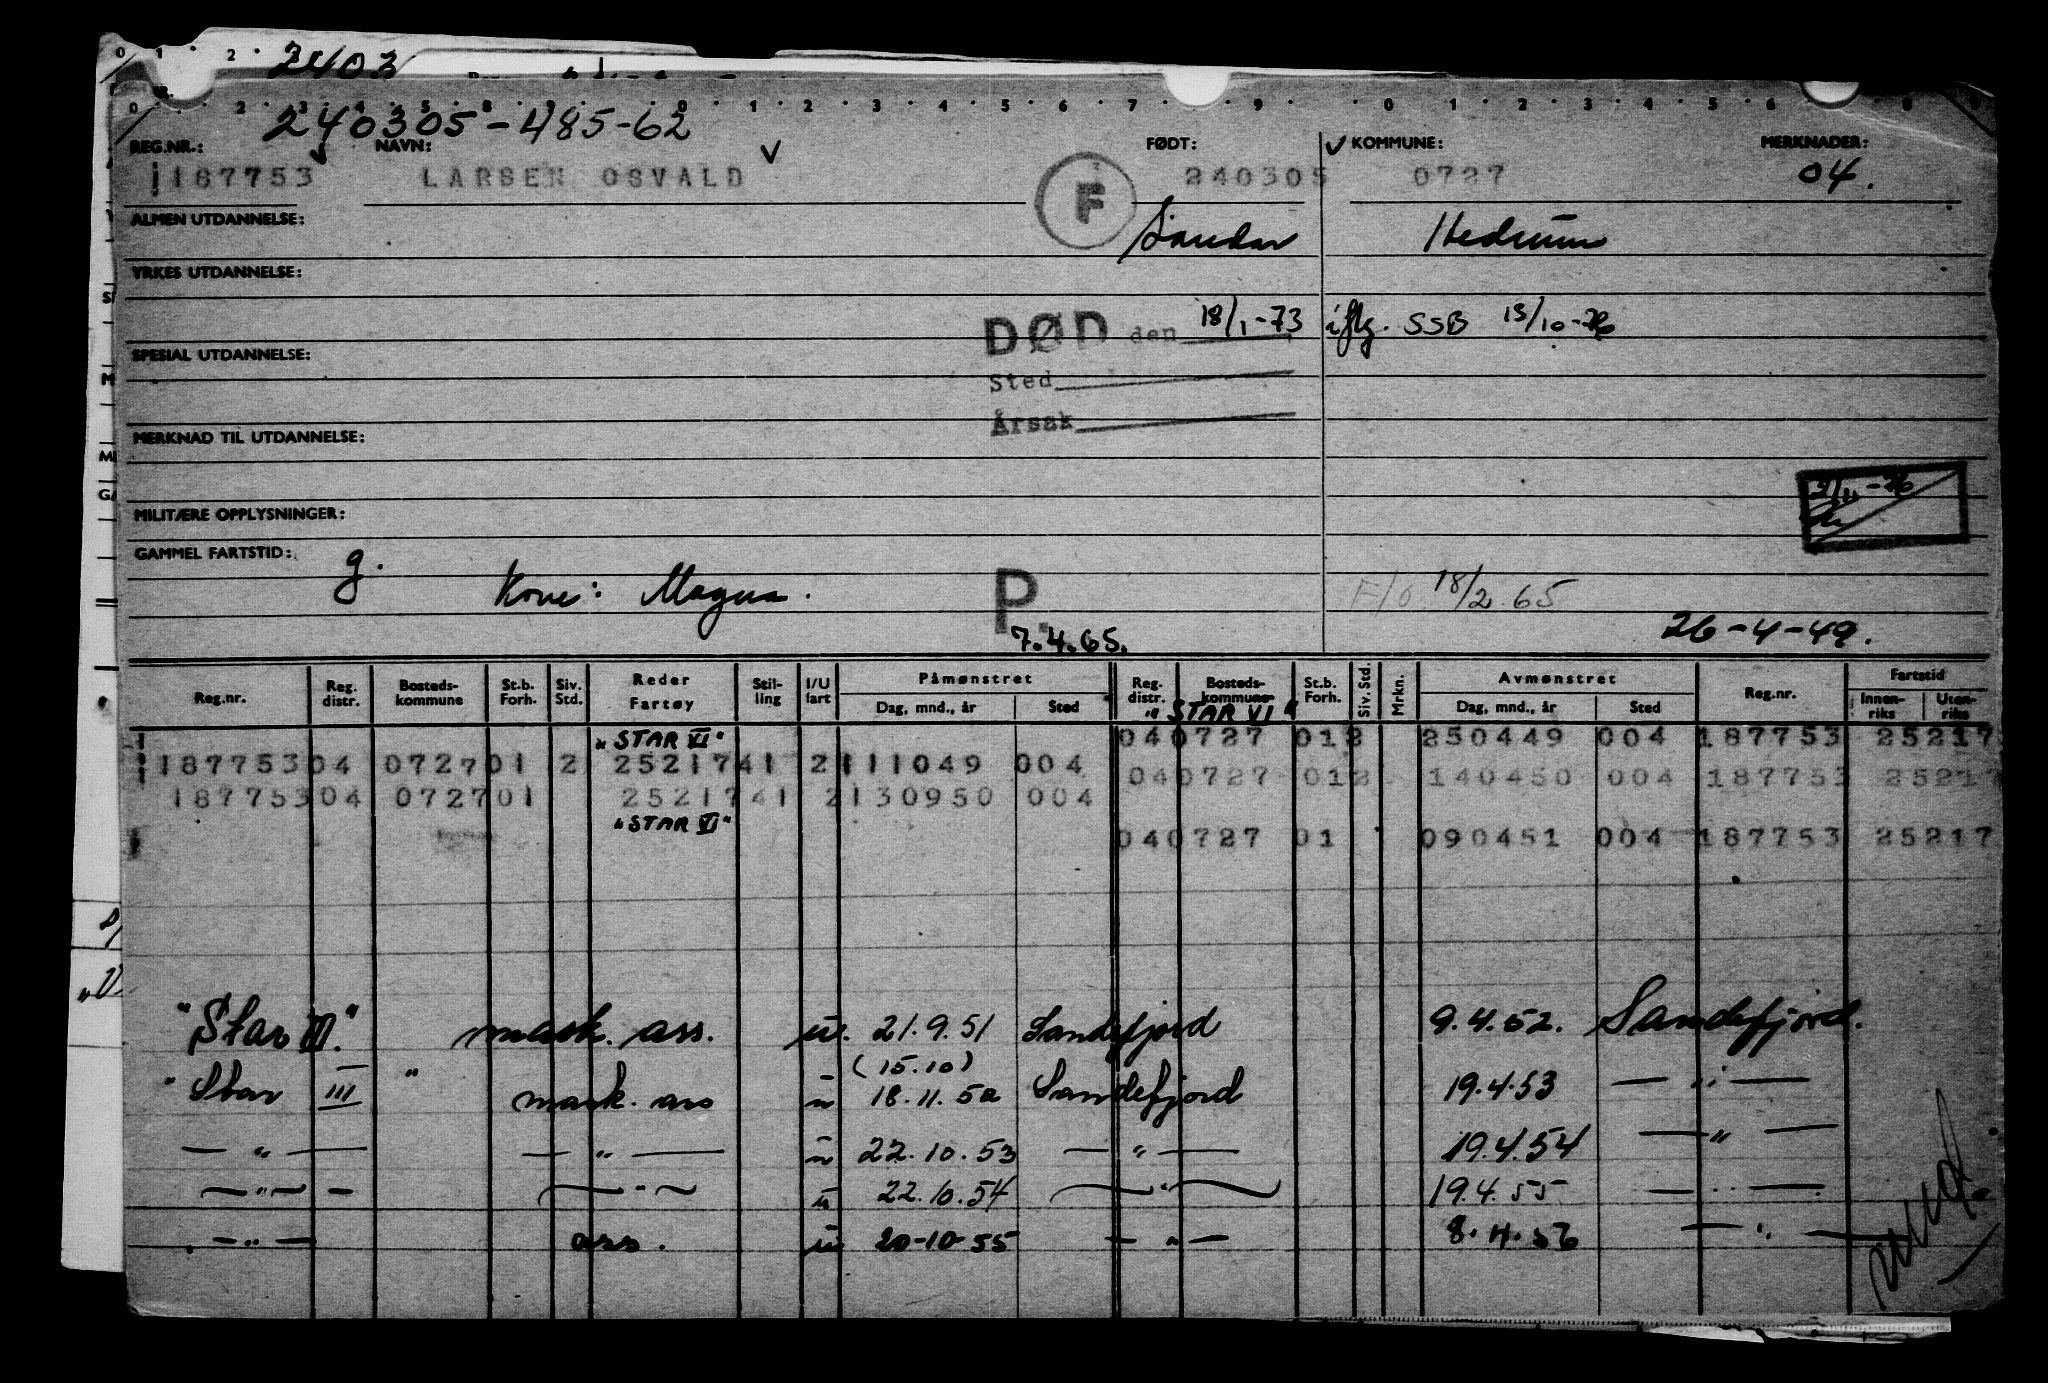 2403
240305-485-62
REG.NR.: NAVN: FØDT: KOMMUNE: MERKNADER:
187753 LARSEN OSVALD F 240305 0727 04.
ALMEN UTDANNELSE: Sandar Hedrum
YRKES UTDANNELSE:
DØD den 18/1-73 iflg. SSB 15/10-76
SPESIAL UTDANNELSE:
Sted
Årsak
MERKNAD TIL UTDANNELSE:
2/11-76
MILITÆRE OPPLYSNINGER:
GAMMEL FARTSTID: g.
Kone: Magna. P. F/o 18/2.65
7.4.65. 26-4-49.
Reg.nr. Reg. distr. Bosteds-kommune St.b. Forh. Siv. Std. Reder Fartøy Stil-ling I/U fart Påmønstret Dag, mnd., år Sted Reg. distr. Bosteds-kommune St.b. Forh. Siv. Std. Mrkn. Avmønstret Dag, mnd., år Sted Reg.nr. Fartstid Innen-riks Uten-riks
"STAR VI"
"STAR VI" 040727 012 250449 004 187753 25217
187753 04 0727 01 2 25217 41 2 111049 004 040727 012 140450 004 187753 25217
187753 04 0727 01 25217 41 2 130950 004
"STAR VI"
040727 01 090451 004 187753 25217
"Star III." mask. ass. u. 21.9.51 Sandefjord 9.4.52. Sandefjord.
(15.10)
"Star III " mask. ass u 18.11.52 Sandefjord 19.4.53 — " —
— " — — " — u 22.10.53 — " — 19.4.54 — " —
— " — — " — u 22.10.54 — " — 19.4.55 — " —
— " — ass. u 20-10-55 — " — 8.4.56 — " —